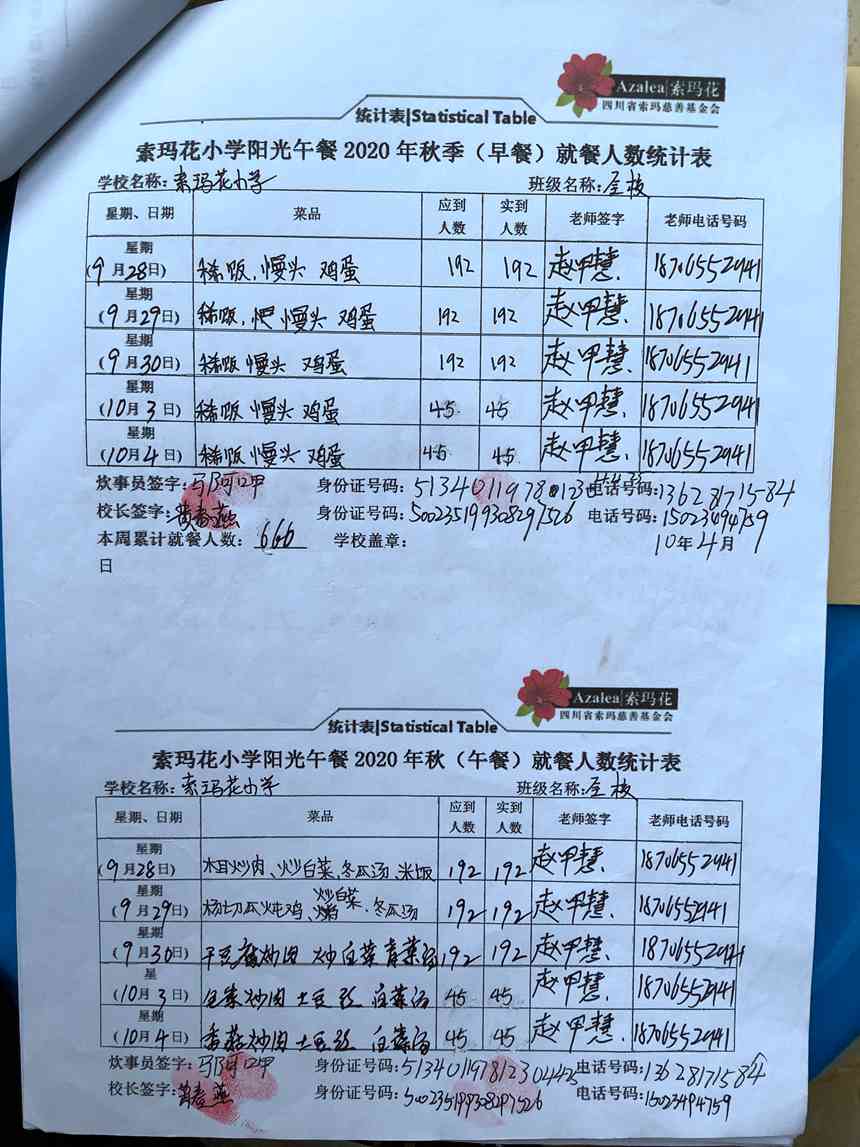 Azalea 索玛花
四川省索玛慈善基金会
统计表|Statistical Table
索玛花小学阳光午餐 2020 年秋季（早餐）就餐人数统计表
学校名称：索玛花小学 班级名称：全校
星期、日期 菜品 应到人数 实到人数 老师签字 老师电话号码
星期
(9月28日) 稀饭，馒头 鸡蛋 192 192 赵甲慧 18706552941
星期
(9月29日) 稀饭，馒头 鸡蛋 192 192 赵甲慧 18706552941
星期
(9月30日) 稀饭 馒头 鸡蛋 192 192 赵甲慧 18706552941
星期
(10月3日) 稀饭 馒头 鸡蛋 45 45 赵甲慧 18706552941
星期
(10月4日) 稀饭 馒头 鸡蛋 45 45 赵甲慧 18706552941
炊事员签字：马阿呷 身份证号码： 电话号码：13628171584
校长签字：黄春燕 身份证号码：500235199308297526 电话号码：15023494759
本周累计就餐人数：666 学校盖章： 10年4月
日
Azalea 索玛花
四川省索玛慈善基金会
统计表|Statistical Table
索玛花小学阳光午餐 2020 年秋（午餐）就餐人数统计表
学校名称：索玛花小学 班级名称：全校
星期、日期 菜品 应到人数 实到人数 老师签字 老师电话号码
星期
(9月28日) 木耳炒肉、炒白菜、冬瓜汤、米饭 192 192 赵甲慧 18706552941
星期
(9月29日) 炖鸡、炒白菜、冬瓜汤 192 192 赵甲慧 18706552941
星期
(9月30日) 干豆腐炒肉 炒白菜 青菜汤 192 192 赵甲慧 18706552941
星
(10月3日) 炒肉 土豆丝 白菜汤 45 45 赵甲慧 18706552941
星期
(10月4日) 香菇炒肉 土豆丝 白菜汤 45 45 赵甲慧 18706552941
炊事员签字：马阿呷 身份证号码： 电话号码：13628171584
校长签字：黄春燕 身份证号码：500235199308297526 电话号码：15023494759